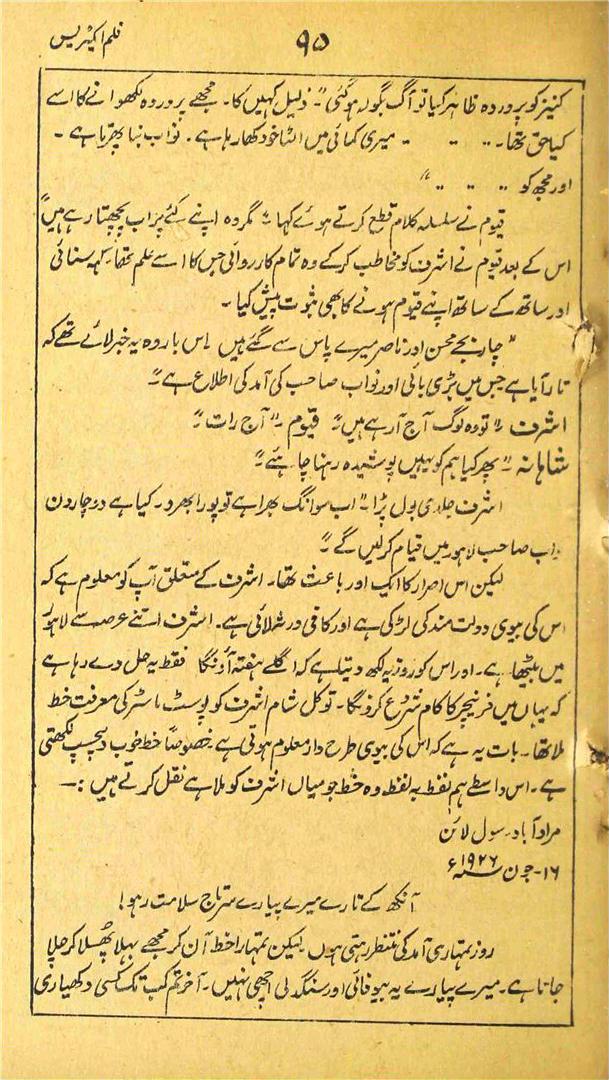 فلم ایکٹریس
۹۵
کنیز کو پروردہ ظاہر کیا تو آگ بگولہ ہو گئی"۔ ذلیل کہیں کا۔ مجھے پروردہ لکھوانے کا اسے
کیا حق تھا۔ ۔۔ ۔۔ ۔۔ میری کمائی میں اتنا خود کھا رہا ہے۔ نواب بنا پھرتا ہے۔
اور مجھ کو ۔۔ ۔۔ ۔۔"
قیوم نے سلسلہ کلام قطع کرتے ہوئے کہا۔" مگر وہ اپنے کئے پر اب پچھتا رہے ہیں"
اس کے بعد قیوم نے اشرف کو مخاطب کرکے وہ تمام کارروائی جس کا اسے علم تھا۔ کہہ سنائی
اور ساتھ کے ساتھ اپنے قیوم ہونے کا بھی ثبوت پیش کیا۔
"چار بجے محسن اور ناصر میرے پاس سے گئے ہیں۔ اس بار وہ یہ خبر لائے تھے کہ
تار آیا ہے جس میں بڑی بائی اور نواب صاحب کی آمد کی اطلاع ہے"۔
اشرف ۔" تو وہ لوگ آج آ رہے ہیں"۔ قیوم ۔" آج رات"۔
شاہانہ ۔" پھر کیا ہم کو یہیں پوشیدہ رہنا چاہئے"۔
اشرف جلدی بول پڑا۔" اب سوانگ بھرا ہے تو پورا بھرو۔ کیا ہے دو چار دن
نواب صاحب لاہور میں قیام کر لیں گے"۔
لیکن اس اصرار کا ایک اور باعث تھا۔ اشرف کے متعلق آپ کو معلوم ہے کہ
اس کی بیوی دولت مند کی لڑکی ہے اور کافی ورثہ لائی ہے۔ اشرف اتنے عرصہ سے لاہور
میں بیٹھا ہے۔ اور اس کو روز یہ لکھ دیتا ہے کہ اگلے ہفتہ آؤنگا فقط یہ جل دے رہا ہے
کہ یہاں میں فرنیچر کا کام شروع کرونگا۔ تو کل شام اشرف کو پوسٹ ماسٹر کی معرفت خط
ملا تھا۔ بات یہ ہے کہ اس کی بیوی طرح دار معلوم ہوتی ہے۔ خصوصاً خط خوب دلچسپ لکھتی
ہے۔ اس واسطے ہم لفظ بہ لفظ وہ خط جو میاں اشرف کو ملا ہے نقل کرتے ہیں :۔
مراد آباد۔ سول لائن
۱۶۔ جون سنہ ۱۹۲۶ء
آنکھ کے تارے میرے پیارے سرتاج سلامت رہو!
روز تمہاری آمد کی منتظر رہتی ہوں۔ لیکن تمہارا خط آن کر مجھے بہلا پھسلا کر چلا
جاتا ہے۔ میرے پیارے یہ بیوفائی اور سنگدلی اچھی نہیں۔ آخر تم کب تک کسی دکھیاری